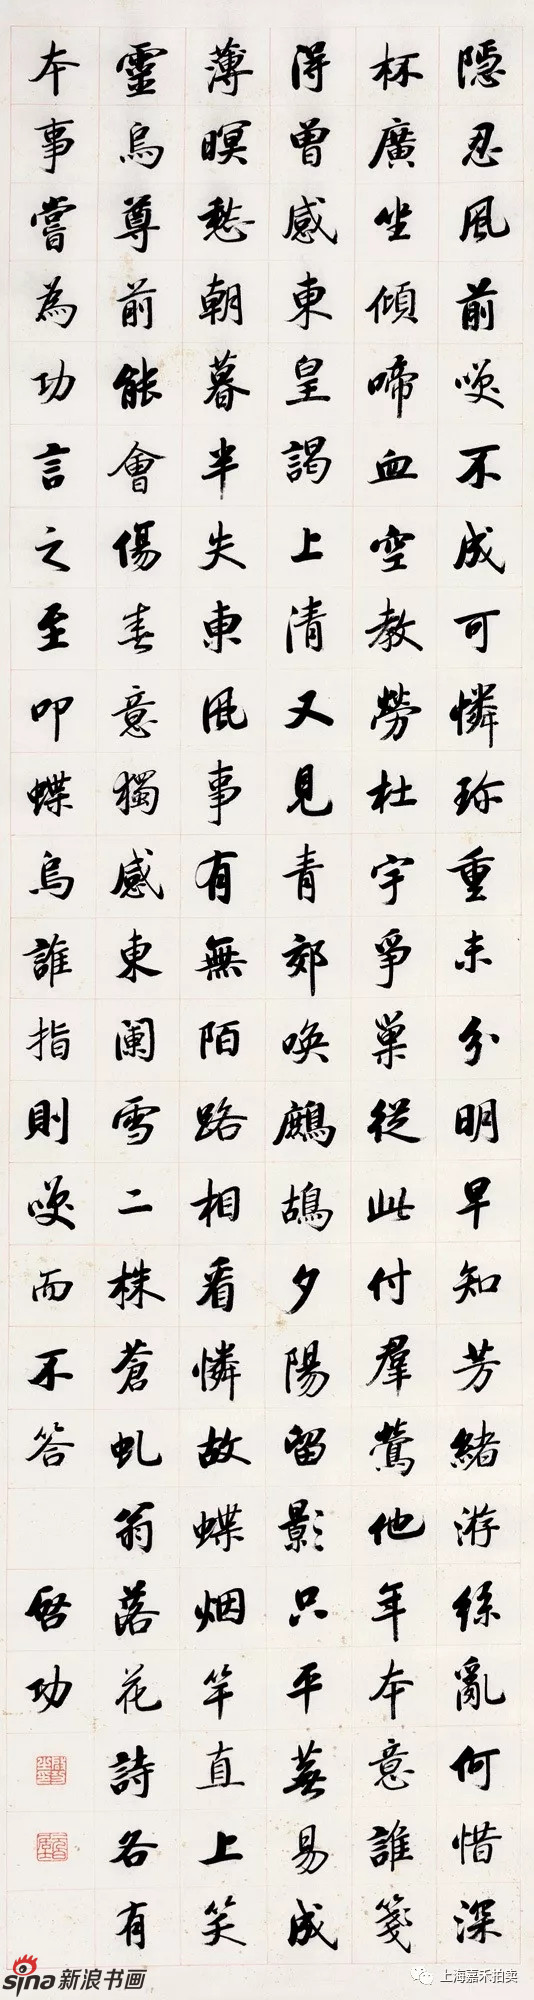 隱忍風前唉不成可憐珍重未分明早知芳緒游絲亂何惜深
杯廣坐傾啼血空教勞杜宇爭巢從此付羣鶯他年本意誰箋
得曾感東皇謁上清又見青郊喚鷓鴣夕陽留影只平蕪易成
薄暝愁朝暮半失東風事有無陌路相看憐故蝶烟竿直上笑
靈烏尊前能會傷春意獨感東闌雪二株蒼虬翁落花詩各有
本事嘗為功言之至叩蝶烏誰指則唉而不答
啓功
sina新浪书画
上海嘉禾拍卖